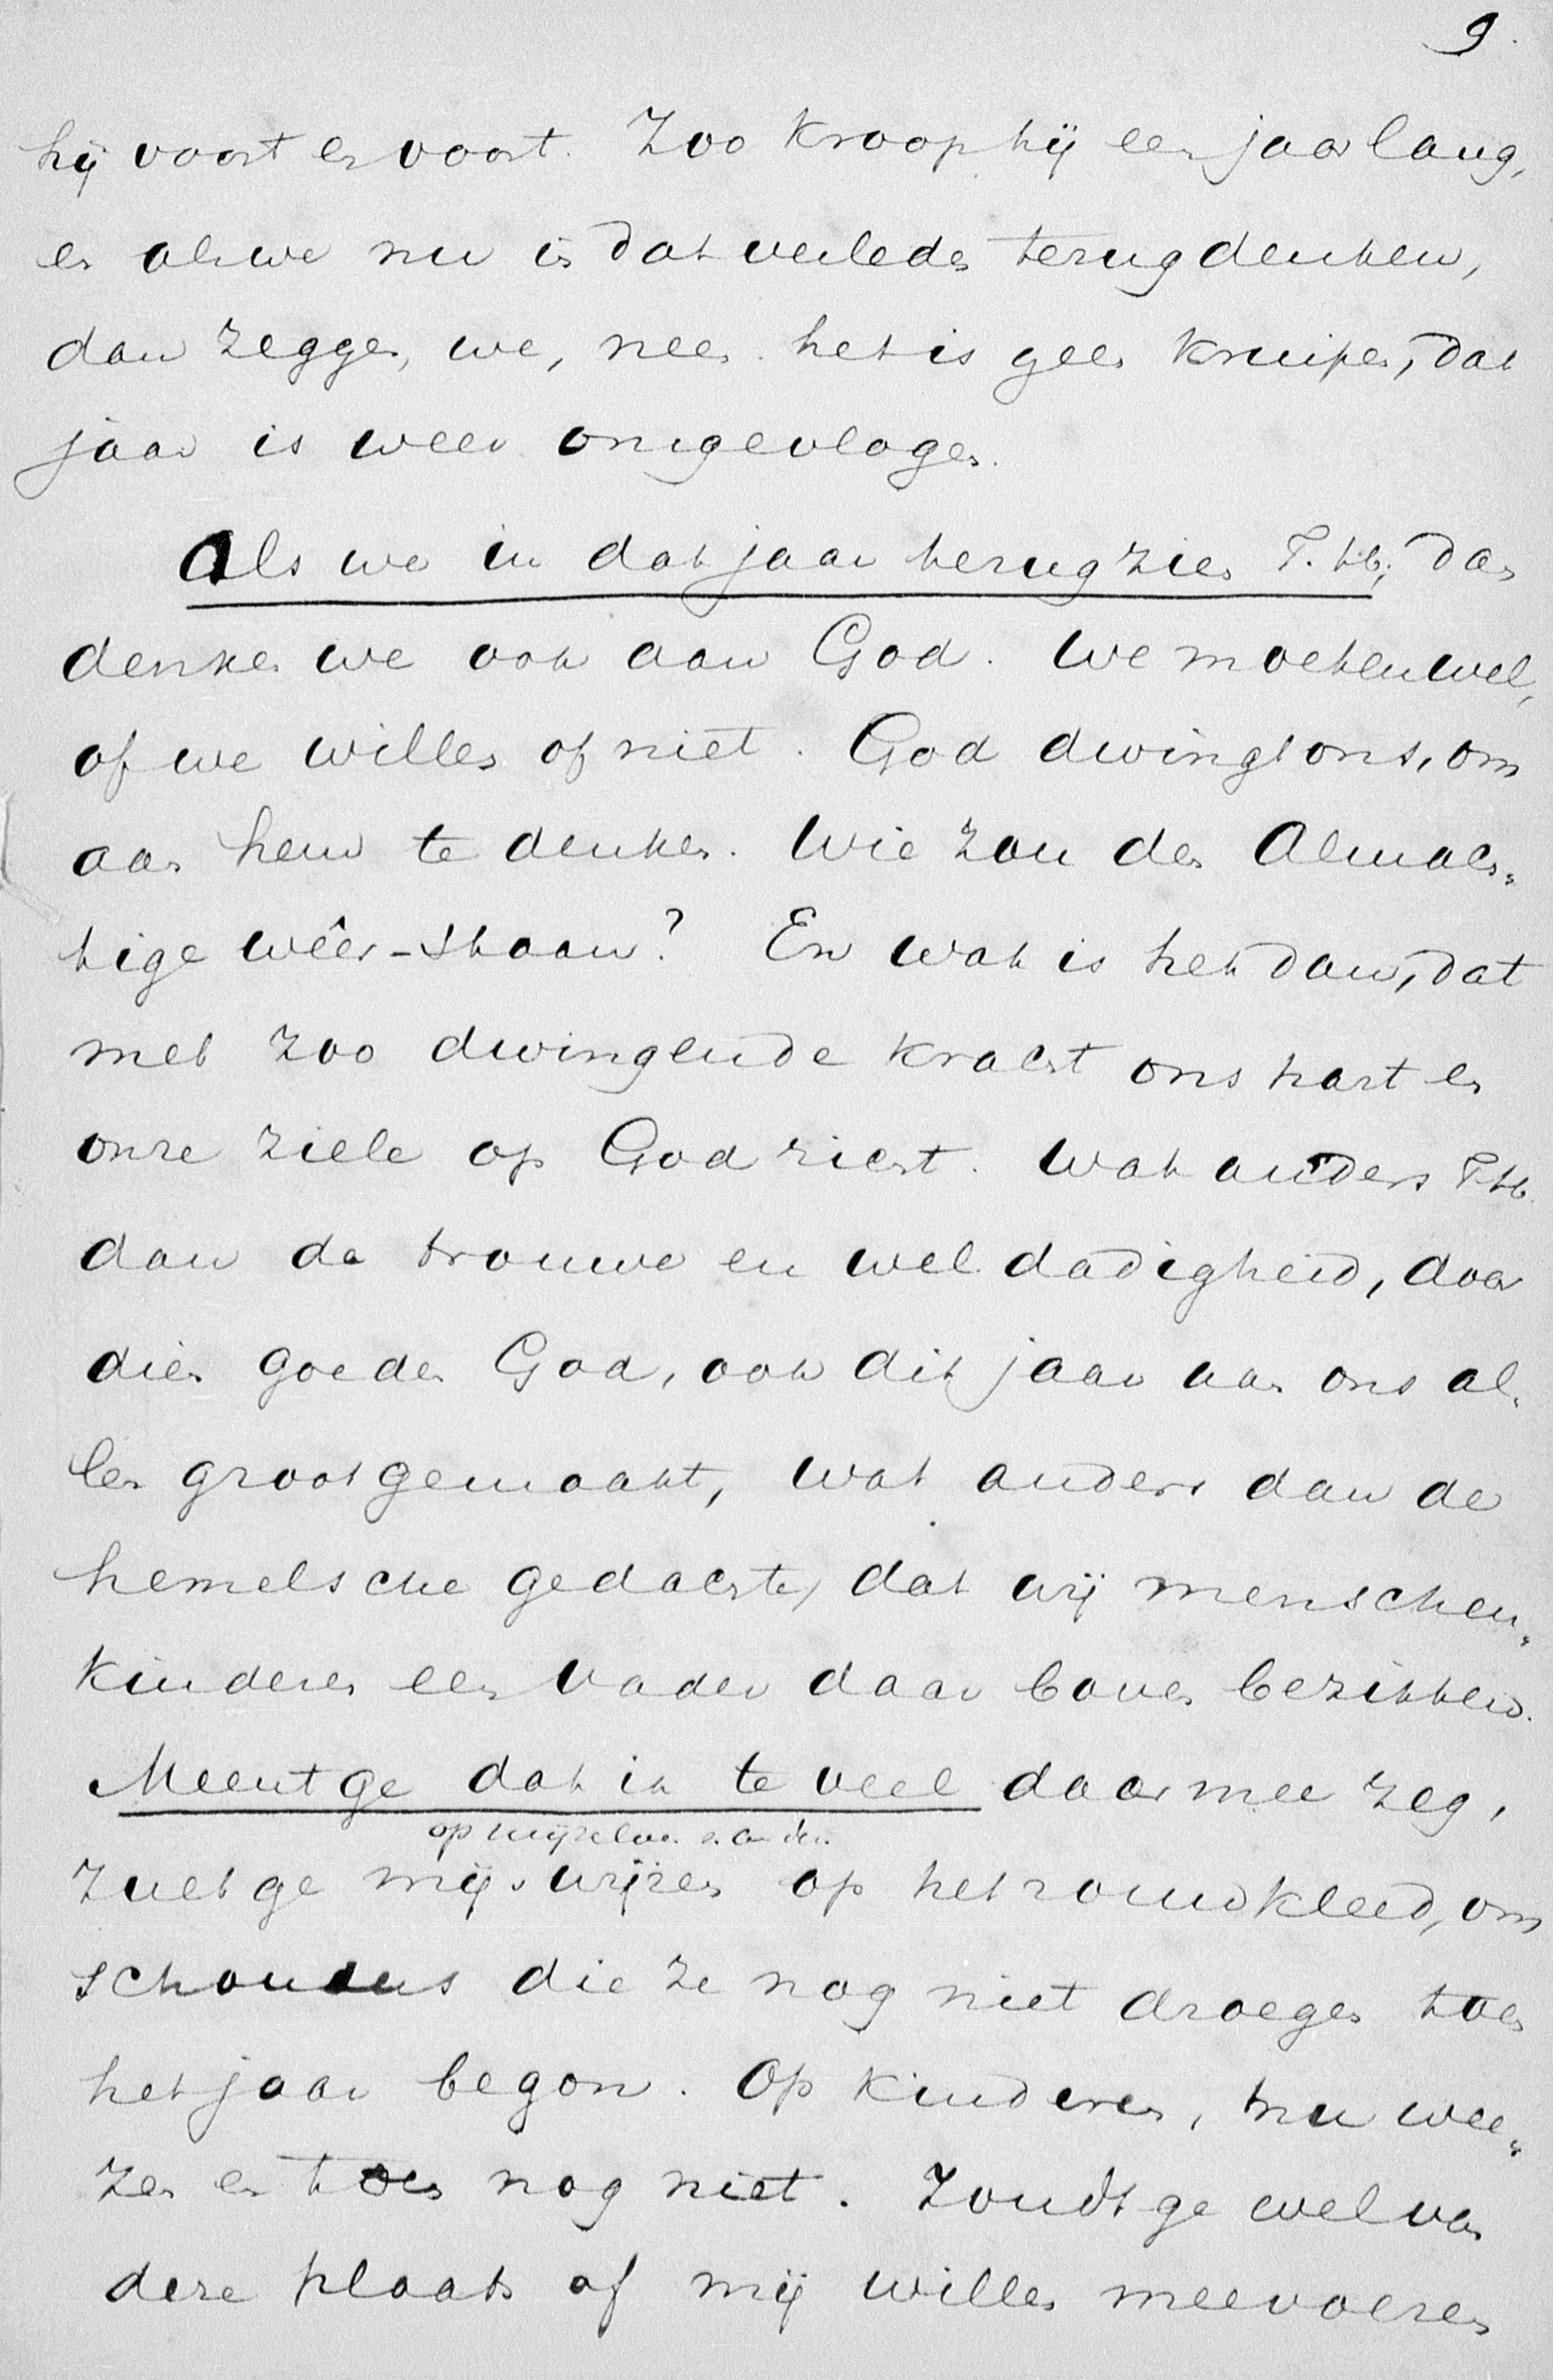 9.
hij voort en voort. Zoo kroop hij een jaar lang,
en als we nu in dat verleden terugdenken,
dan zeggen we, neen het is geen kruipen, dat
jaar is weer omgevlogen.
Als we in dat jaar terugzien T. H., dan
denken we ook aan God. We moeten wel,
of we willen of niet. God dwingt ons, om
aan hem te denken. Wie zou den Almach-
tige wêer-staan? En wat is het dan, dat
met zoo dwingende kracht ons hart en
onze ziele op God richt. Wat anders T. H.
dan de trouwe en weldadigheid, door
dien goeden God, ook dit jaar aan ons al-
len groot gemaakt, wat anders dan de
hemelsche gedachte, dat wij menschen-
kinderen een Vader daar boven bezitten.
Meent ge dat ik te veel daarmee zeg,
op mijzelven
Zult ge mij wijzen op het rouwkleed, om
schouders die ze nog niet droegen toen
het jaar begon. Op kinderen, nu wee-
zen en toen nog niet. Zoudt ge wel van
deze plaats af mij willen meevoeren